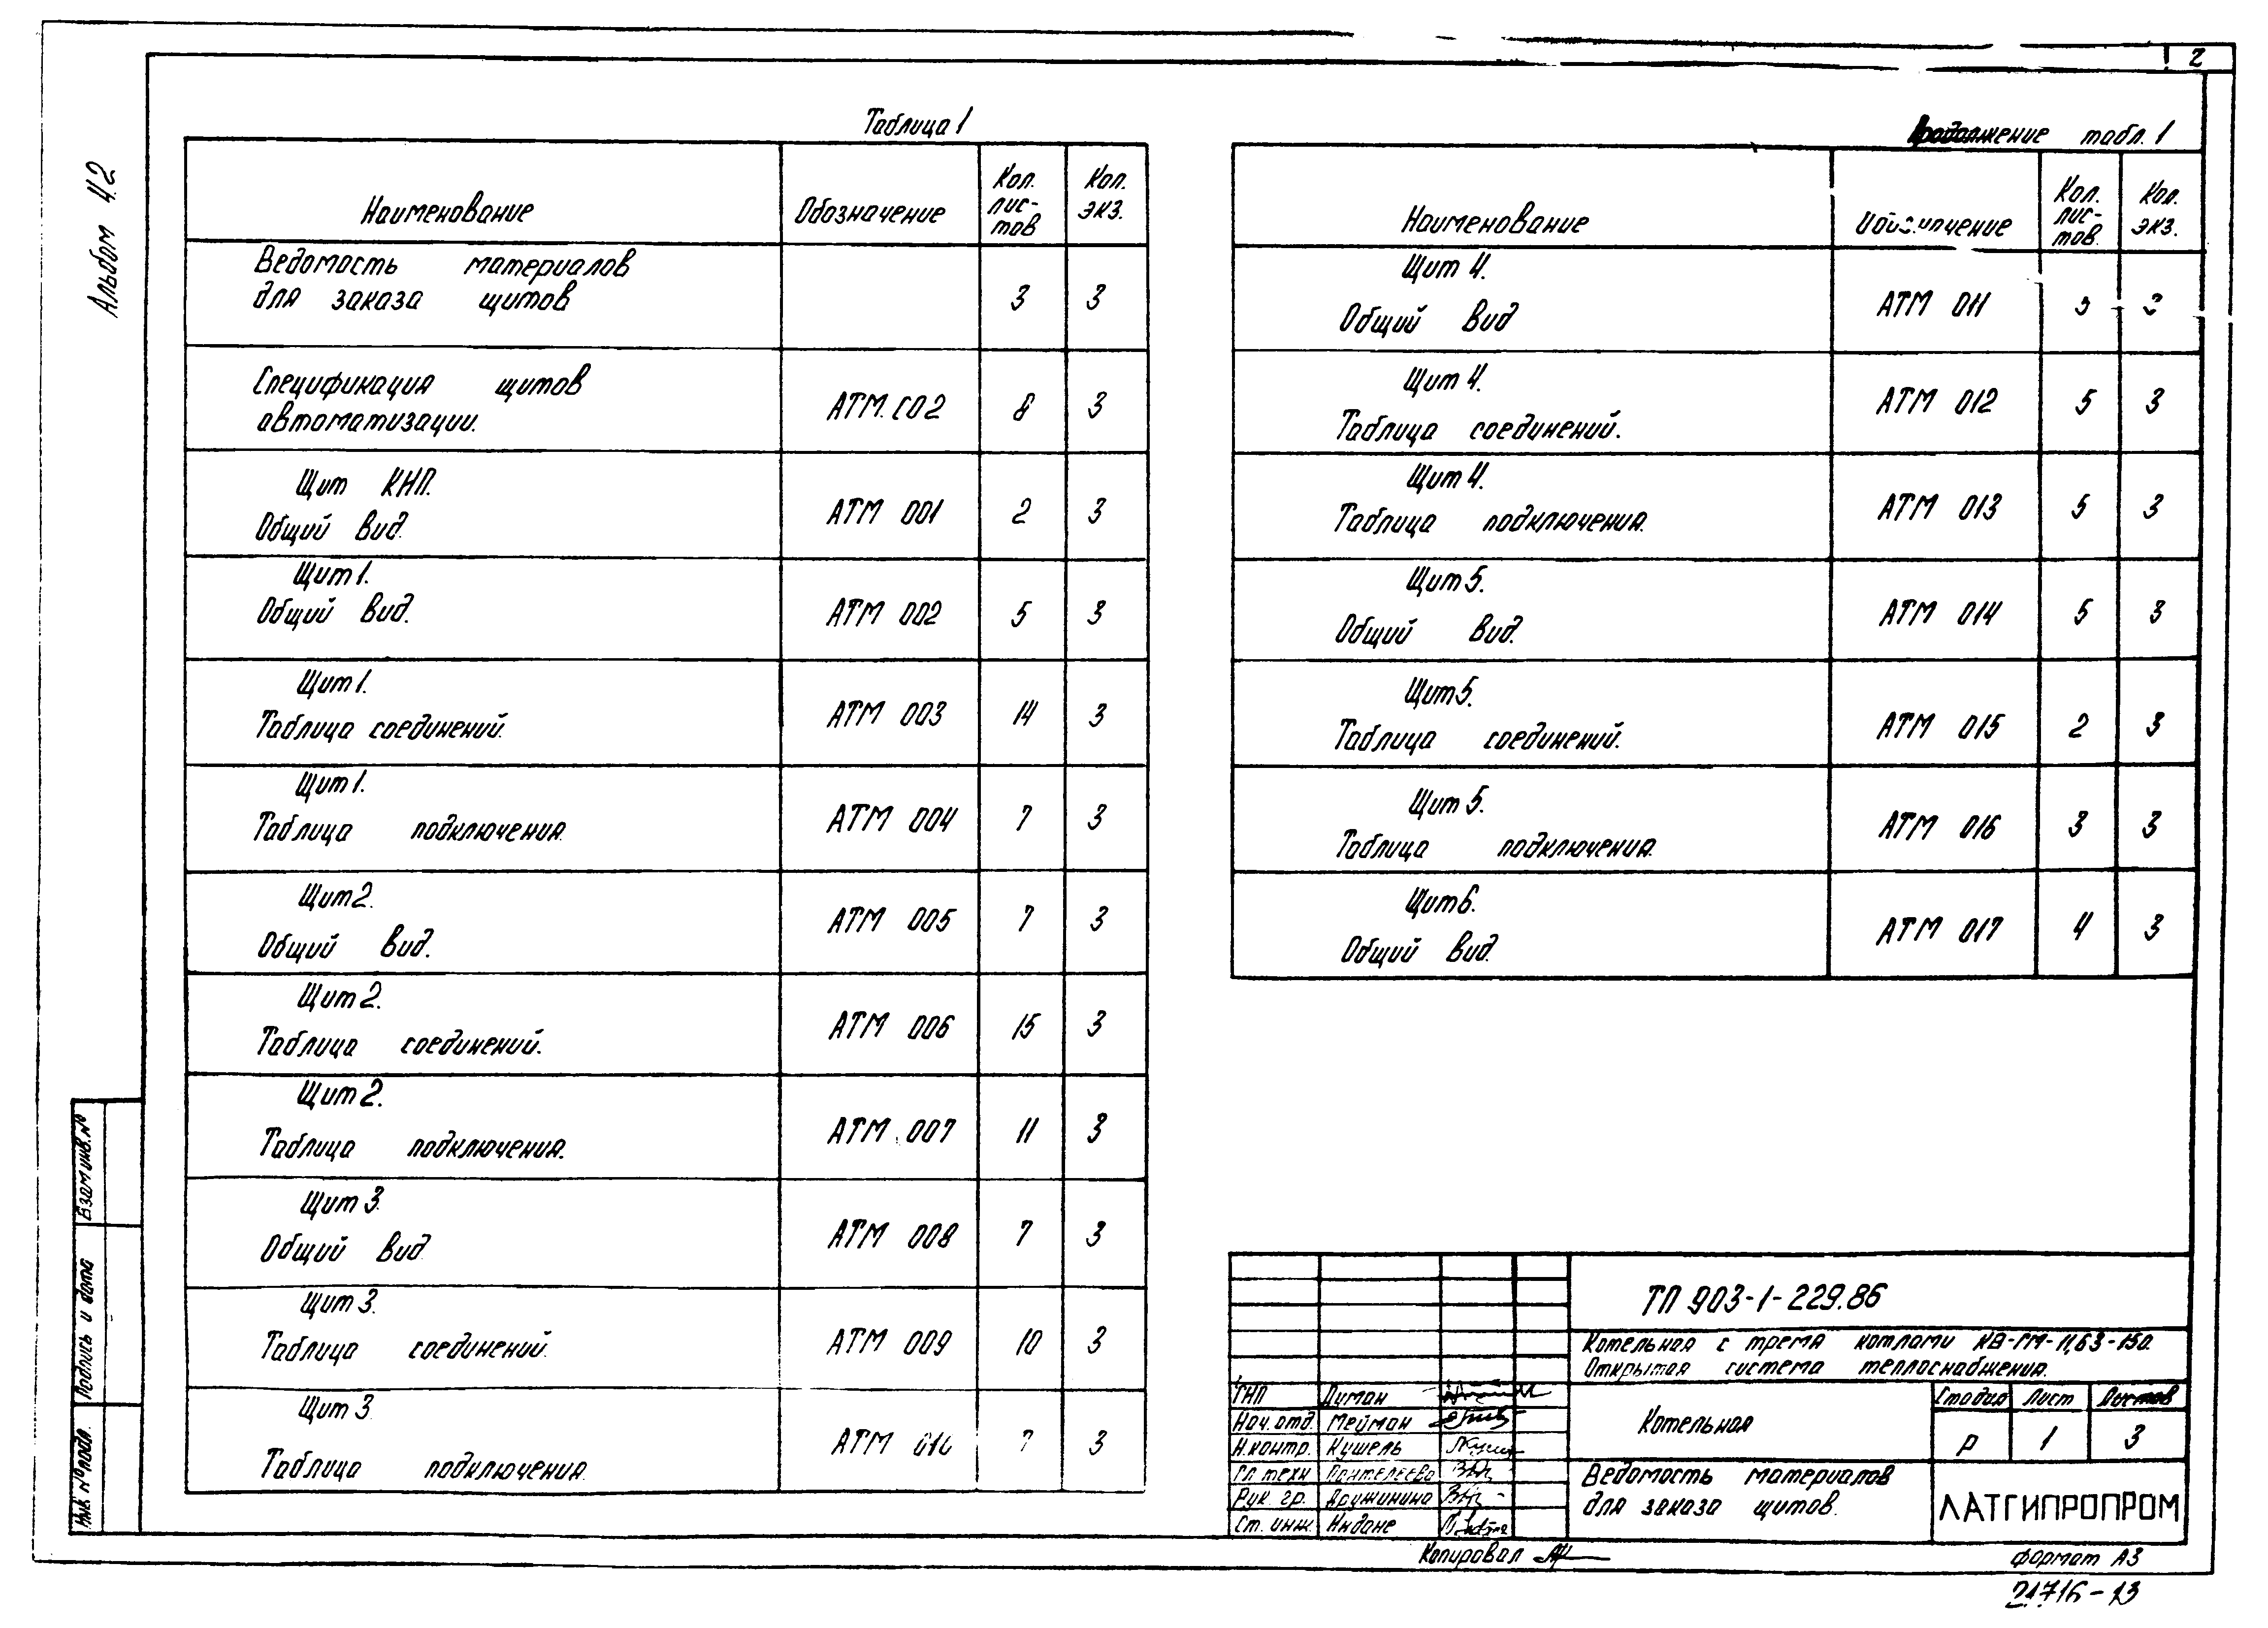 2
Альбом 4.2
Таблица 1
Наименование Обозначение Кол. лис-тов Кол. экз.
Ведомость материалов
для заказа щитов 3 3
Спецификация щитов
автоматизации. АТМ.СО2 8 3
Щит КНП.
Общий вид. АТМ 001 2 3
Щит 1.
Общий вид. АТМ 002 5 3
Щит 1.
Таблица соединений. АТМ 003 14 3
Щит 1.
Таблица подключения. АТМ 004 7 3
Щит 2.
Общий вид. АТМ 005 7 3
Щит 2.
Таблица соединений. АТМ 006 15 3
Щит 2.
Таблица подключения. АТМ 007 11 3
Щит 3.
Общий вид АТМ 008 7 3
Щит 3.
Таблица соединений. АТМ 009 10 3
Щит 3.
Таблица подключения. АТМ 010 7 3
Продолжение табл. 1
Наименование Обозначение Кол. лис-тов. Кол. экз.
Щит 4.
Общий вид АТМ 011 3
Щит 4.
Таблица соединений. АТМ 012 5 3
Щит 4.
Таблица подключения. АТМ 013 5 3
Щит 5.
Общий вид. АТМ 014 5 3
Щит 5.
Таблица соединений. АТМ 015 2 3
Щит 5.
Таблица подключения. АТМ 016 3 3
Щит 6.
Общий вид. АТМ 017 4 3
Взам инв. №
Подпись и дата
Инв. № подл.
ТП 903-1-229.86
Котельная с тремя котлами КВ-ГМ-11,63-150.
Открытая система теплоснабжения.
ГИП Думан
Нач. отд. Мейман
Н.контр. Кушель
Гл техн Пантелеева
Рук. гр. Дружинина
Ст. инж. Индане
Котельная
Стадия Лист Листов
Р 1 3
Ведомость материалов
для заказа щитов.
ЛАТГИПРОПРОМ
Копировал
Формат А3
21716-13